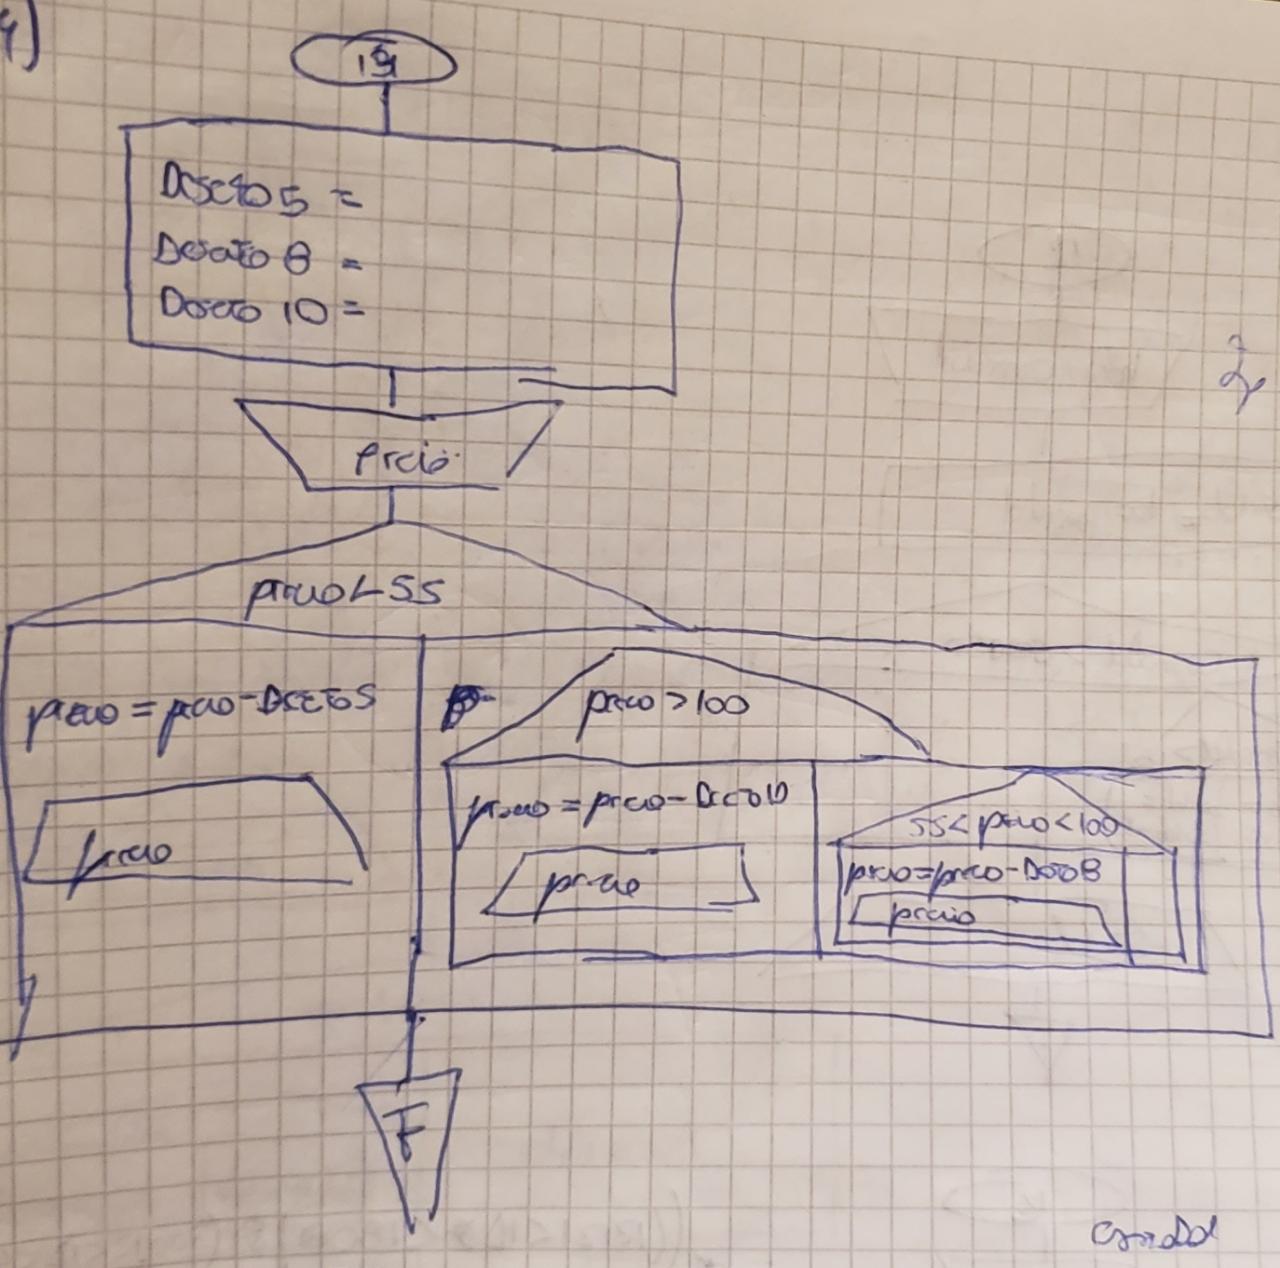 4)
Dscto 5 =
Dscto 8 =
Dscto 10 =
Precio
precio < 55
precio = precio - Dscto5
precio
precio > 100
precio = precio - Dscto10
precio
55 < precio < 100
precio = precio - Dscto8
precio
F